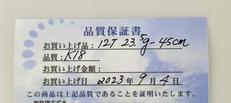 品質保証書
お買い上げ品: 12T 23.5g-45cm
品質: K18
お買い上げ金額:
お買い上げ日 2023年9月4日
この商品は上記品質であることを証明いたします。